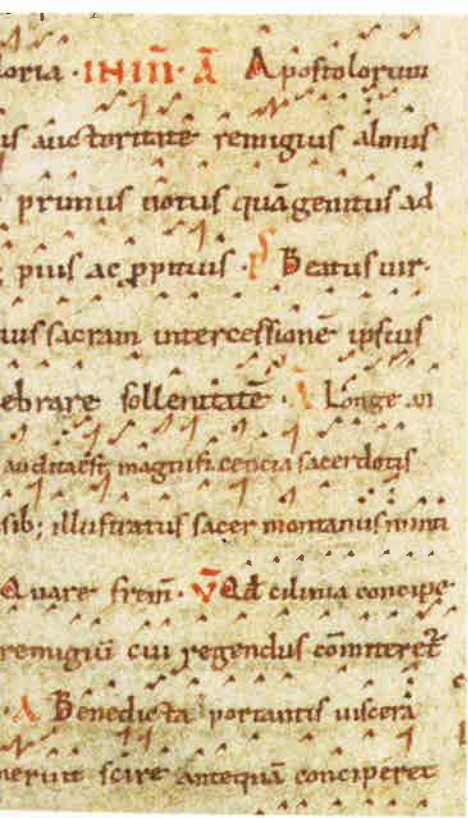 loria · IN III · Ā Apostolorum
is auctoritate remigius almus
primus notus quā genitus ad
pius ac ppitius · P̄ Beatus uir ·
uis sacram intercessionē ipsius
ebrare sollenitatē · A Longe an
auditaest magnificencia sacerdotis
sib; illustratus sacer montanus
Quare frem̄ · V̄ Ed cilinia concipe
remigiū cui regendus cōmitteret
· A Benedicta portantis uiscera
nerunt scire antequā conciperet